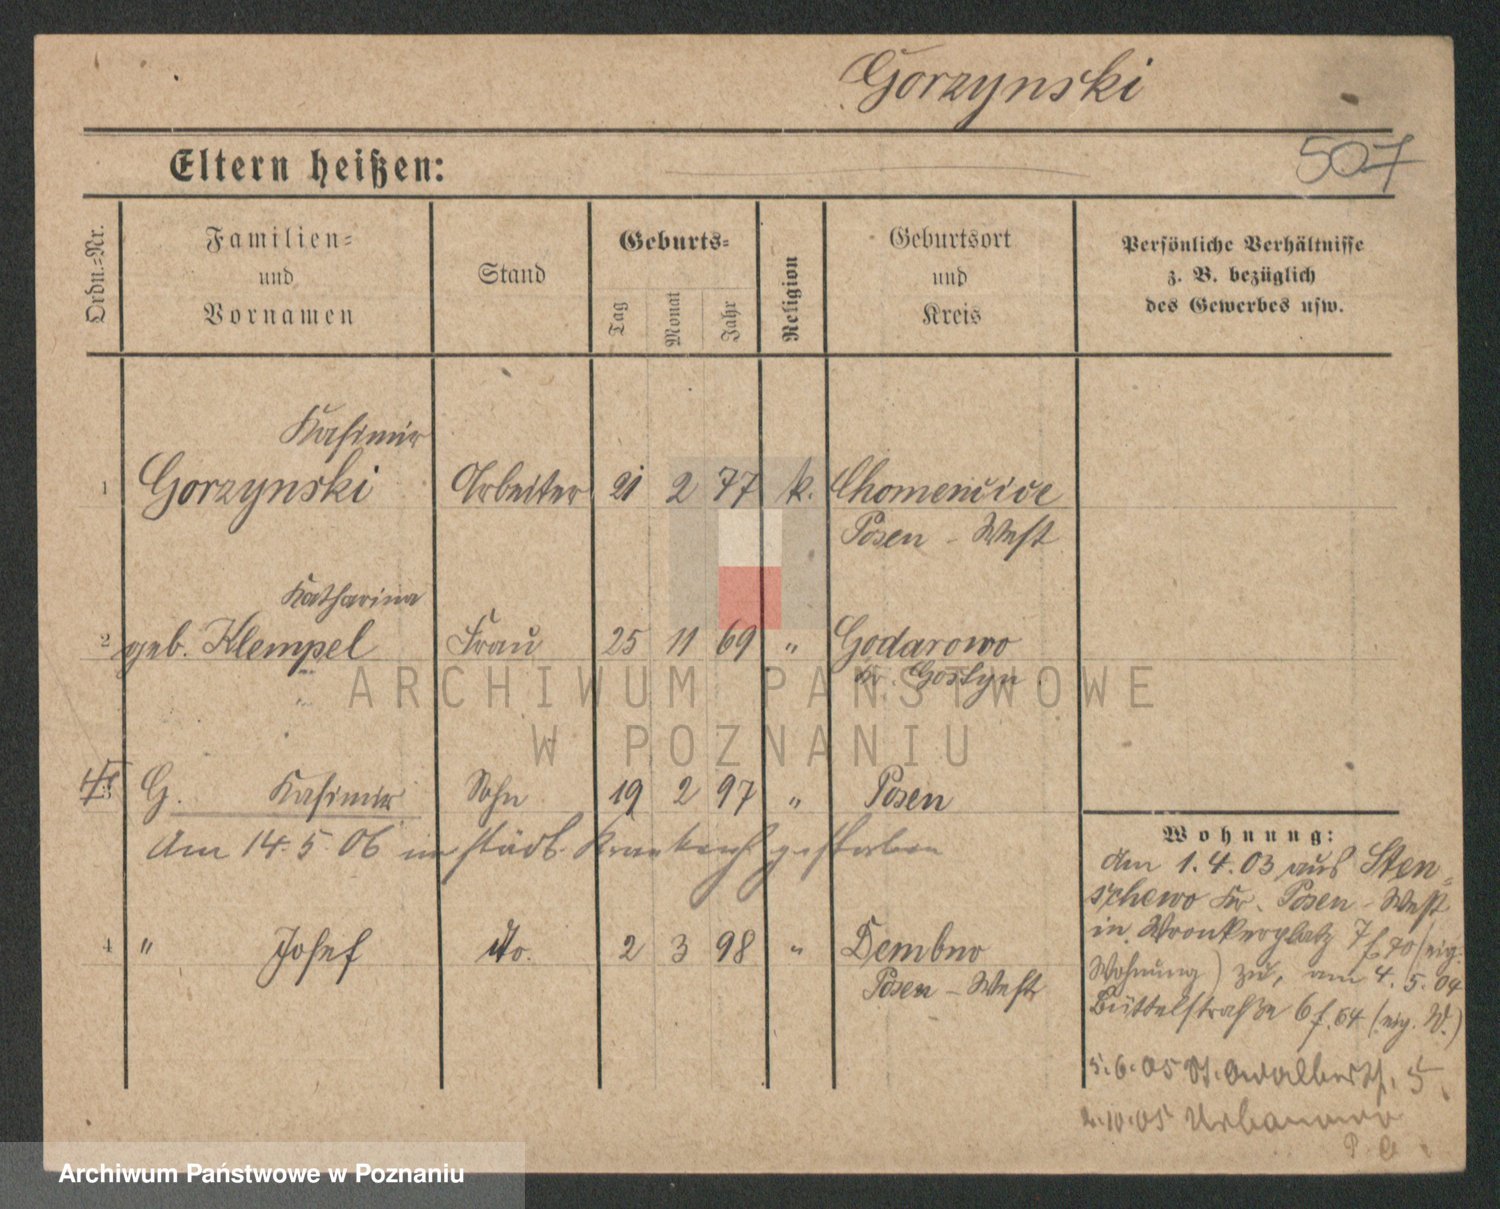 Gorzynski
507
Eltern heißen:
Ordn.-Nr.
Familien-
und
Vornamen
Stand
Geburts-
Tag
Monat
Jahr
Religion
Geburtsort
und
Kreis
Persönliche Verhältnisse
z. B. bezüglich
des Gewerbes usw.
Kasimir
1 Gorzynski Arbeiter 21 2 77 k. Chomencice
Posen - West
Katharina
2 geb. Klempel Frau 25 11 69 " Godurowo
Kr. Gostyn
3 G. Kasimir Sohn 19 2 97 " Posen
Am 14.5.06 im städt. Krankenh gestorben
4 " Josef do. 2 3 98 " Dembno
Posen - West
Wohnung:
Am 1.4.03 aus Sten-
schewo Kr. Posen - West
in Wronkerplatz 7 f. 70 (eig.
Wohnung) zu, am 4.5.04
Büttelstraße 6 f. 64 (eig. W.)
5.6.05 St. Adalbertst. 5
2.10.05 Urbanowo
P. O.
ARCHIWUM PAŃSTWOWE
W POZNANIU
Archiwum Państwowe w Poznaniu